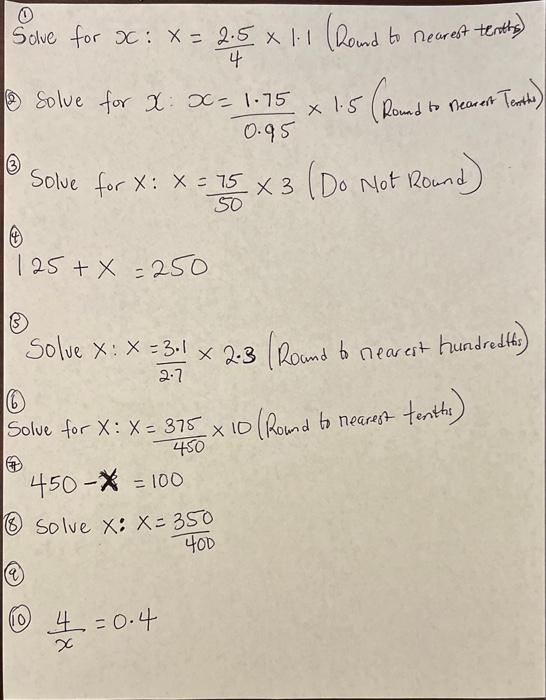 ①
Solve for x: x = 2.5/4 × 1.1 (Round to nearest tenths)
② Solve for x: x = 1.75/0.95 × 1.5 (Round to nearest Tenths)
③
Solve for x: x = 75/50 × 3 (Do Not Round)
④
125 + x = 250
⑤
Solve x: x = 3.1/2.7 × 2.3 (Round to nearest hundredths)
⑥
Solve for x: x = 375/450 × 10 (Round to nearest tenths)
⑦
450 - x = 100
⑧ Solve x: x = 350/400
⑨
⑩ 4/x = 0.4